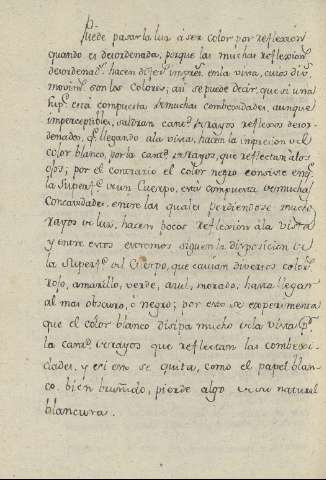 Puede pasar la luz á ser color por reflexion
quando es desordenada, porque las muchas reflexion.
desordenad. hacen difer.s impres. en la vista, cuios div.s
movim.s son los colores; asi se puede decir, que si una
sup.e está compuesta de muchas combexidades, aunque
imperceptibles, saldran cant.d de rayos reflexos desor-
denados, q.e llegando á la vista, hacen la impresion del
color blanco, por la cant.d de rayos, que reflectan a los
ojos; por el contrario el color negro consiste en q.e
la Superf.e de un Cuerpo, está compuesta de muchas
Concavidades, entre las quales perdiendose muchos
rayos de luz, hacen pocas reflexion. á la vista
y entre estos extremos siguen la disposicion de
la Superf.e del Cuerpo, que causan diversos color.s
rojo, amarillo, verde, azul, morado, hasta llegar
al mas obscuro, ó negro; por esto se experimenta
que el color blanco disipa mucho de la vista p.r
la cant.d de rayos que reflectan las combexi-
dades, y si esto se quita, como el papel blan-
co bien bruñido, pierde algo de su natural
blancura.